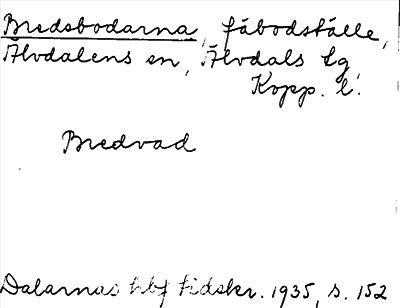 Bredsbodarna, fäbodställe,
Älvdalens sn, Älvdals tg
Kopp. l.
Bredvad
Dalarnas hbf tidskr. 1935, s. 152